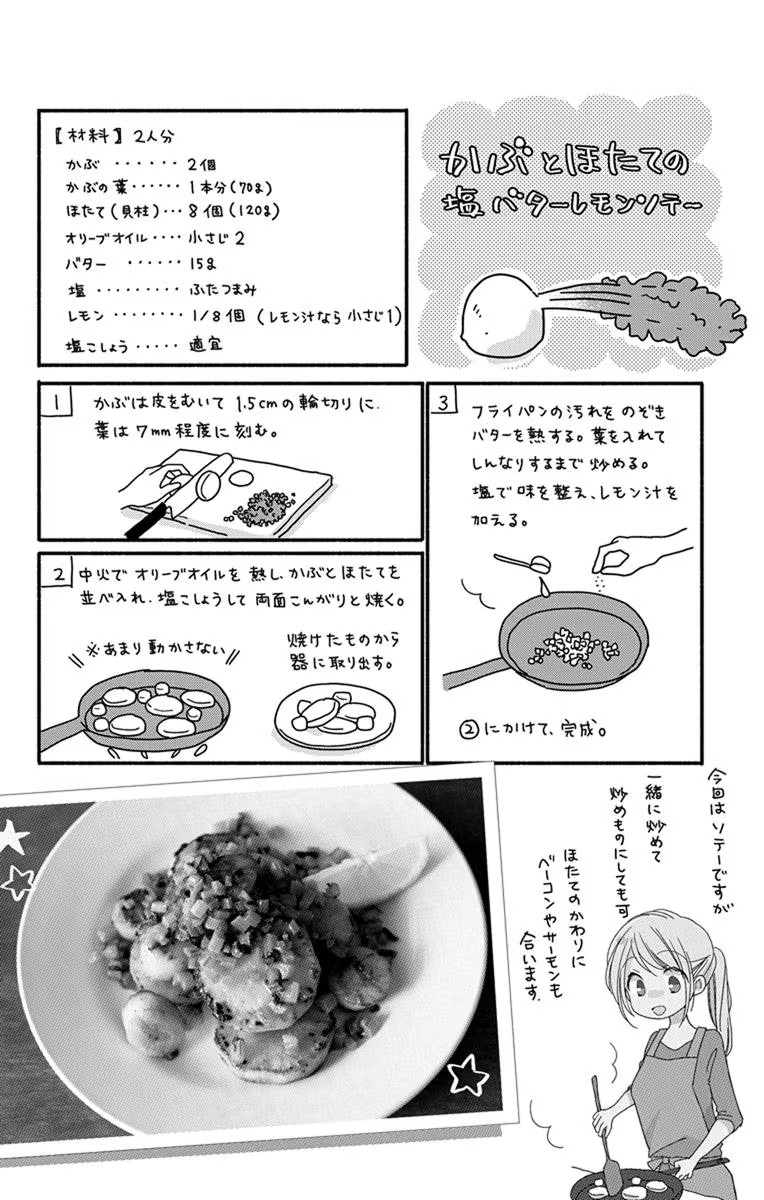 かぶとほたての
塩バターレモンソテー
【材料】2人分
かぶ ・・・・・・ 2個
かぶの葉・・・・・・ 1本分(70g)
ほたて(貝柱)・・・ 8個(120g)
オリーブオイル・・・・ 小さじ2
バター ・・・・・・ 15g
塩 ・・・・・・・・・ ふたつまみ
レモン ・・・・・・・・ 1/8個 (レモン汁なら小さじ1)
塩こしょう・・・・・ 適宜
1
かぶは皮をむいて1.5cmの輪切りに.
葉は7mm程度に刻む。
2
中火でオリーブオイルを熱し、かぶとほたてを
並べ入れ、塩こしょうして両面こんがりと焼く。
※あまり動かさない
焼けたものから
器に取り出す。
3
フライパンの汚れをのぞき
バターを熱する。葉を入れて
しんなりするまで炒める。
塩で味を整え、レモン汁を
加える。
②にかけて、完成。
今回はソテーですが
一緒に炒めて
炒めものにしても可
ほたてのかわりに
ベーコンやサーモンも
合います.